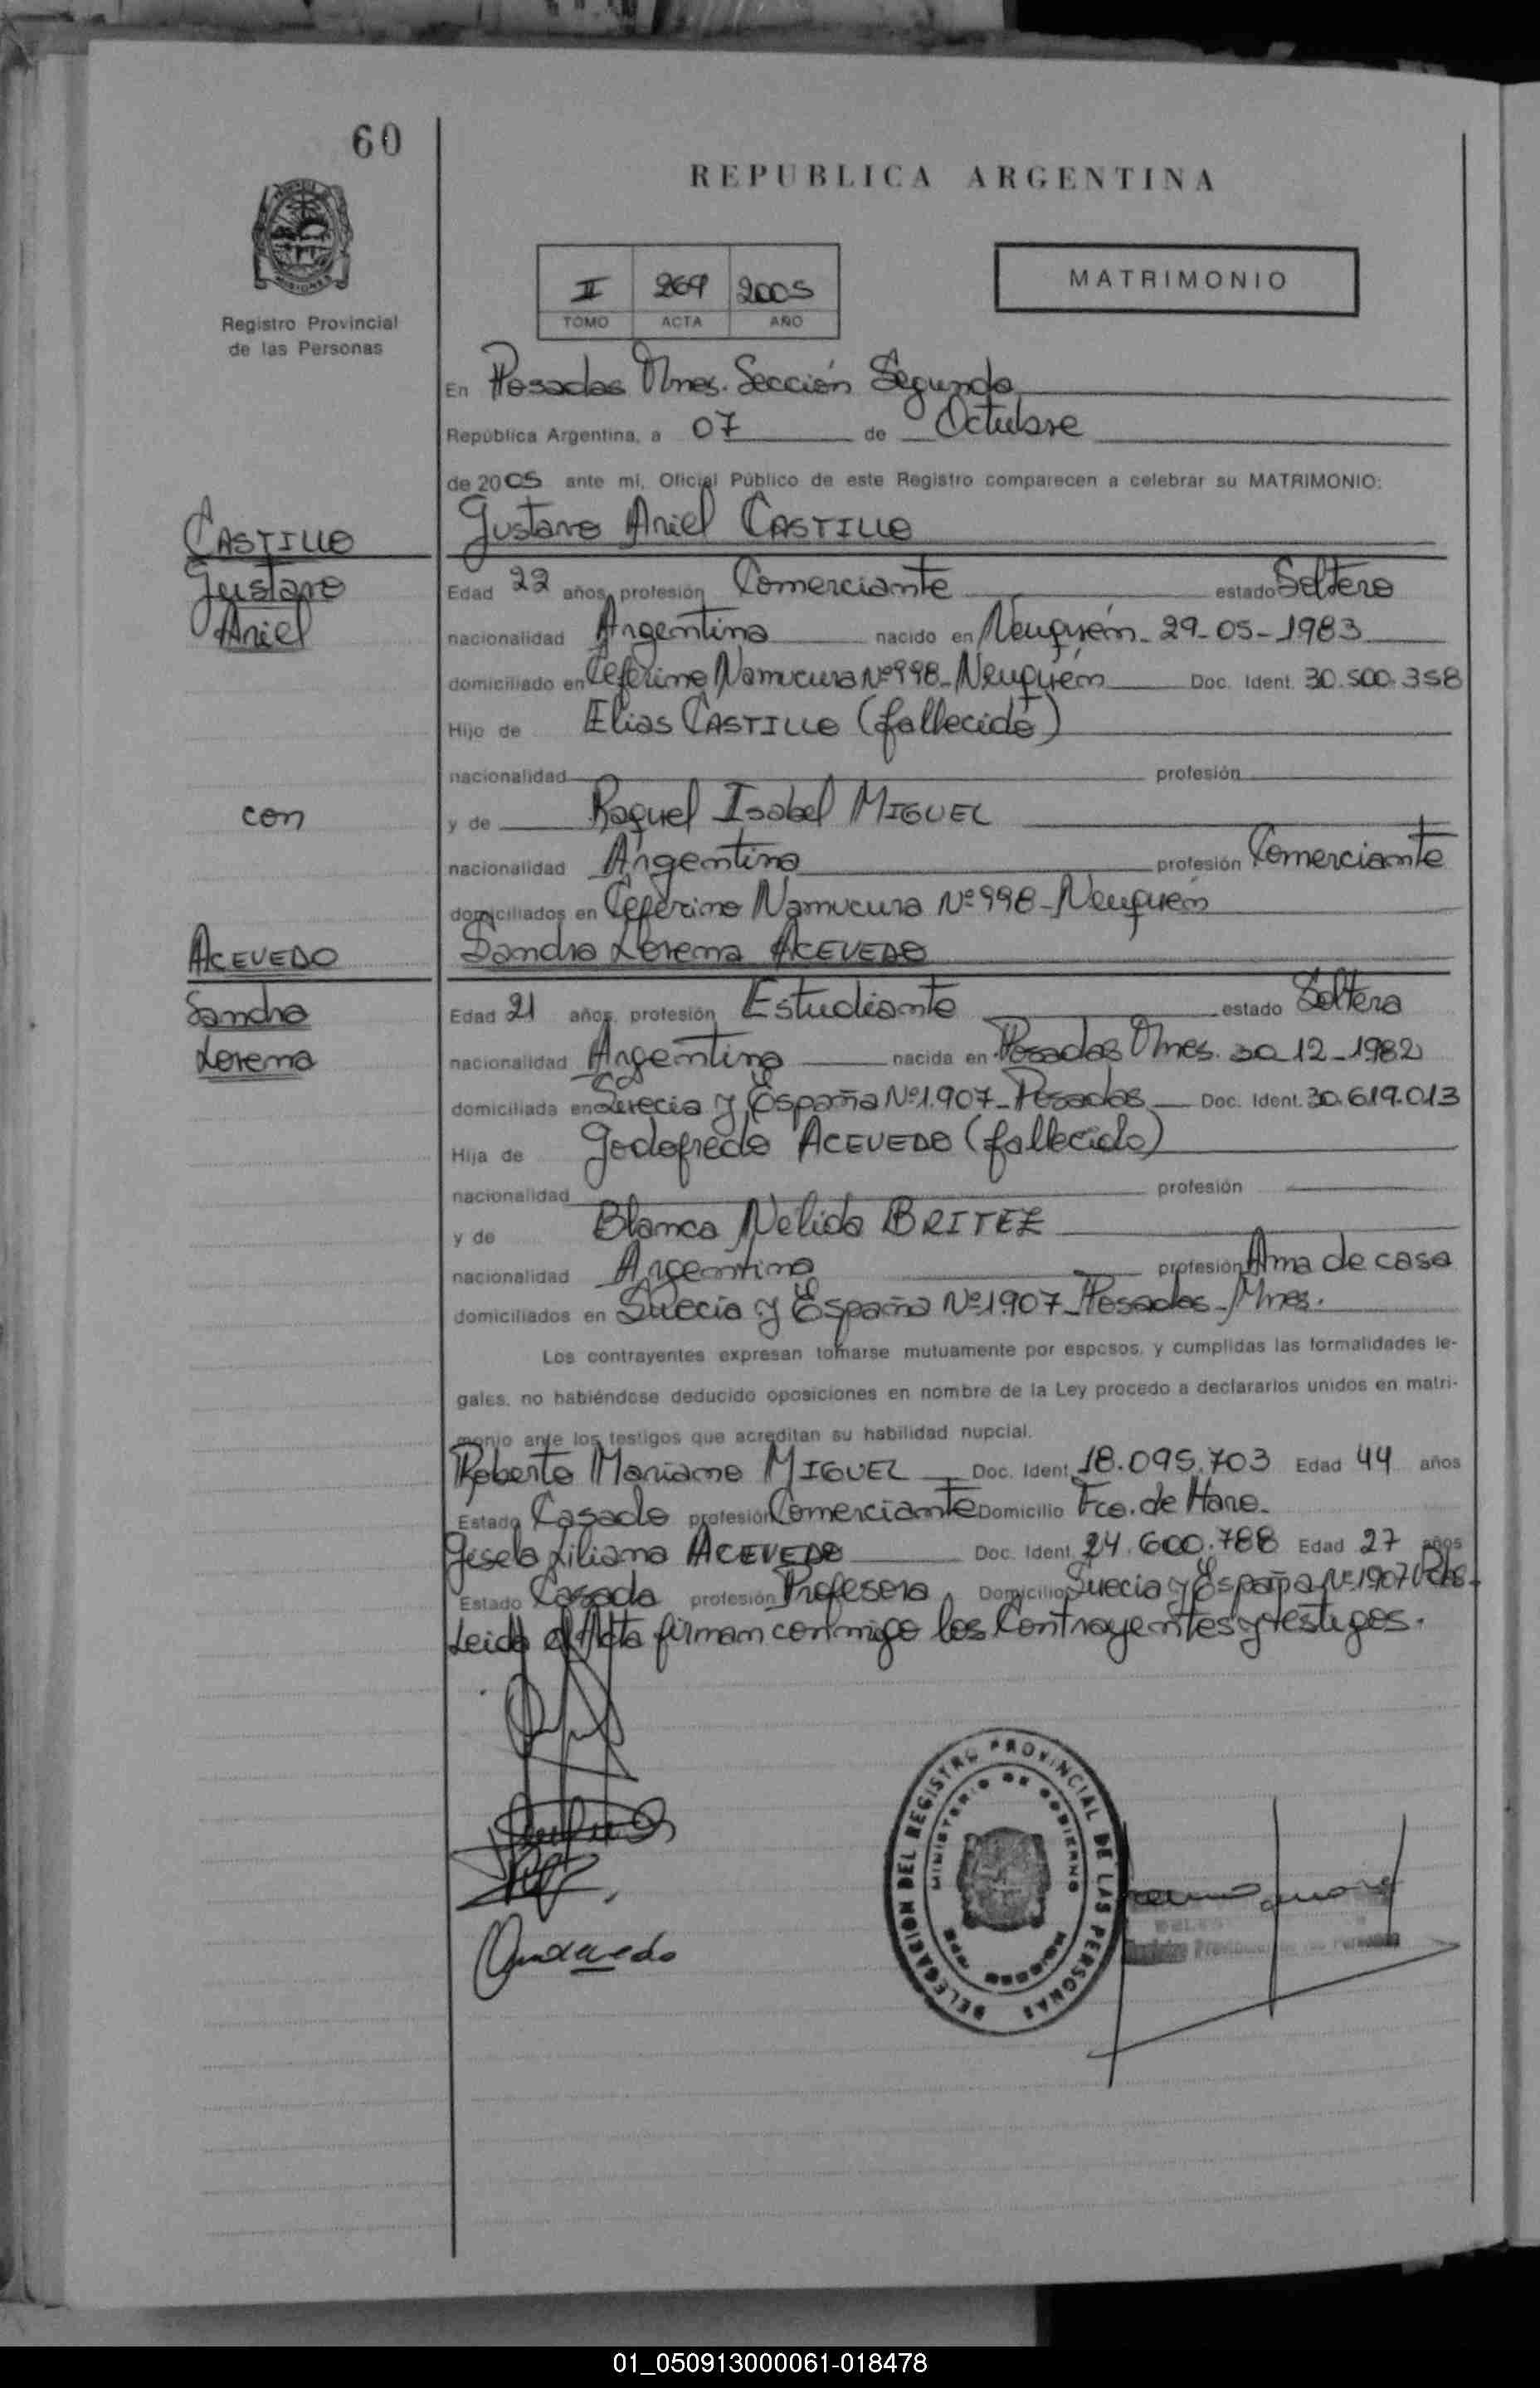 60
REPUBLICA ARGENTINA
Registro Provincial
de las Personas
II 269 2005
TOMO ACTA AÑO
MATRIMONIO
En Posadas Mnes. Sección Segunda
República Argentina, a 07 de Octubre
de 2005 ante mi, Oficial Público de este Registro comparecen a celebrar su MATRIMONIO:
CASTILLO
Gustavo
Ariel
Gustavo Ariel CASTILLO
Edad 22 años, profesión Comerciante estado Soltero
nacionalidad Argentina nacido en Neuquén - 29-05-1983
domiciliado en Ceferino Namucura Nº 998 - Neuquén Doc. Ident. 30.500.358
Hijo de Elias CASTILLO (fallecido)
nacionalidad profesión
con
y de Raquel Isabel MIGUEL
nacionalidad Argentina profesión Comerciante
domiciliados en Ceferino Namucura Nº 998 - Neuquén
ACEVEDO
Sandra
Lorena
Sandra Lorena ACEVEDO
Edad 21 años, profesión Estudiante estado Soltera
nacionalidad Argentina nacida en Posadas Mnes. 30-12-1982
domiciliada en Suecia y España Nº 1.907 - Posadas Doc. Ident. 30.619.013
Hija de Godofredo ACEVEDO (fallecido)
nacionalidad profesión
y de Blanca Nélida BRITEZ
nacionalidad Argentina profesión Ama de casa
domiciliados en Suecia y España Nº 1907 - Posadas - Mnes.
Los contrayentes expresan tomarse mutuamente por esposos, y cumplidas las formalidades le-
gales, no habiéndose deducido oposiciones en nombre de la Ley procedo a declararlos unidos en matri-
monio ante los testigos que acreditan su habilidad nupcial.
Roberto Mariano MIGUEL Doc. Ident. 18.095.703 Edad 44 años
Estado Casado profesión Comerciante Domicilio Fco. de Haro.
Gisela Liliana ACEVEDO Doc. Ident. 24.600.788 Edad 27 años
Estado Casada profesión Profesora Domicilio Suecia y España Nº 1907 Pdas.
Leida el Acta firman conmigo los Contrayentes y testigos.
DELEGACION DEL REGISTRO PROVINCIAL DE LAS PERSONAS
MINISTERIO DE GOBIERNO
MISIONES
01_050913000061-018478